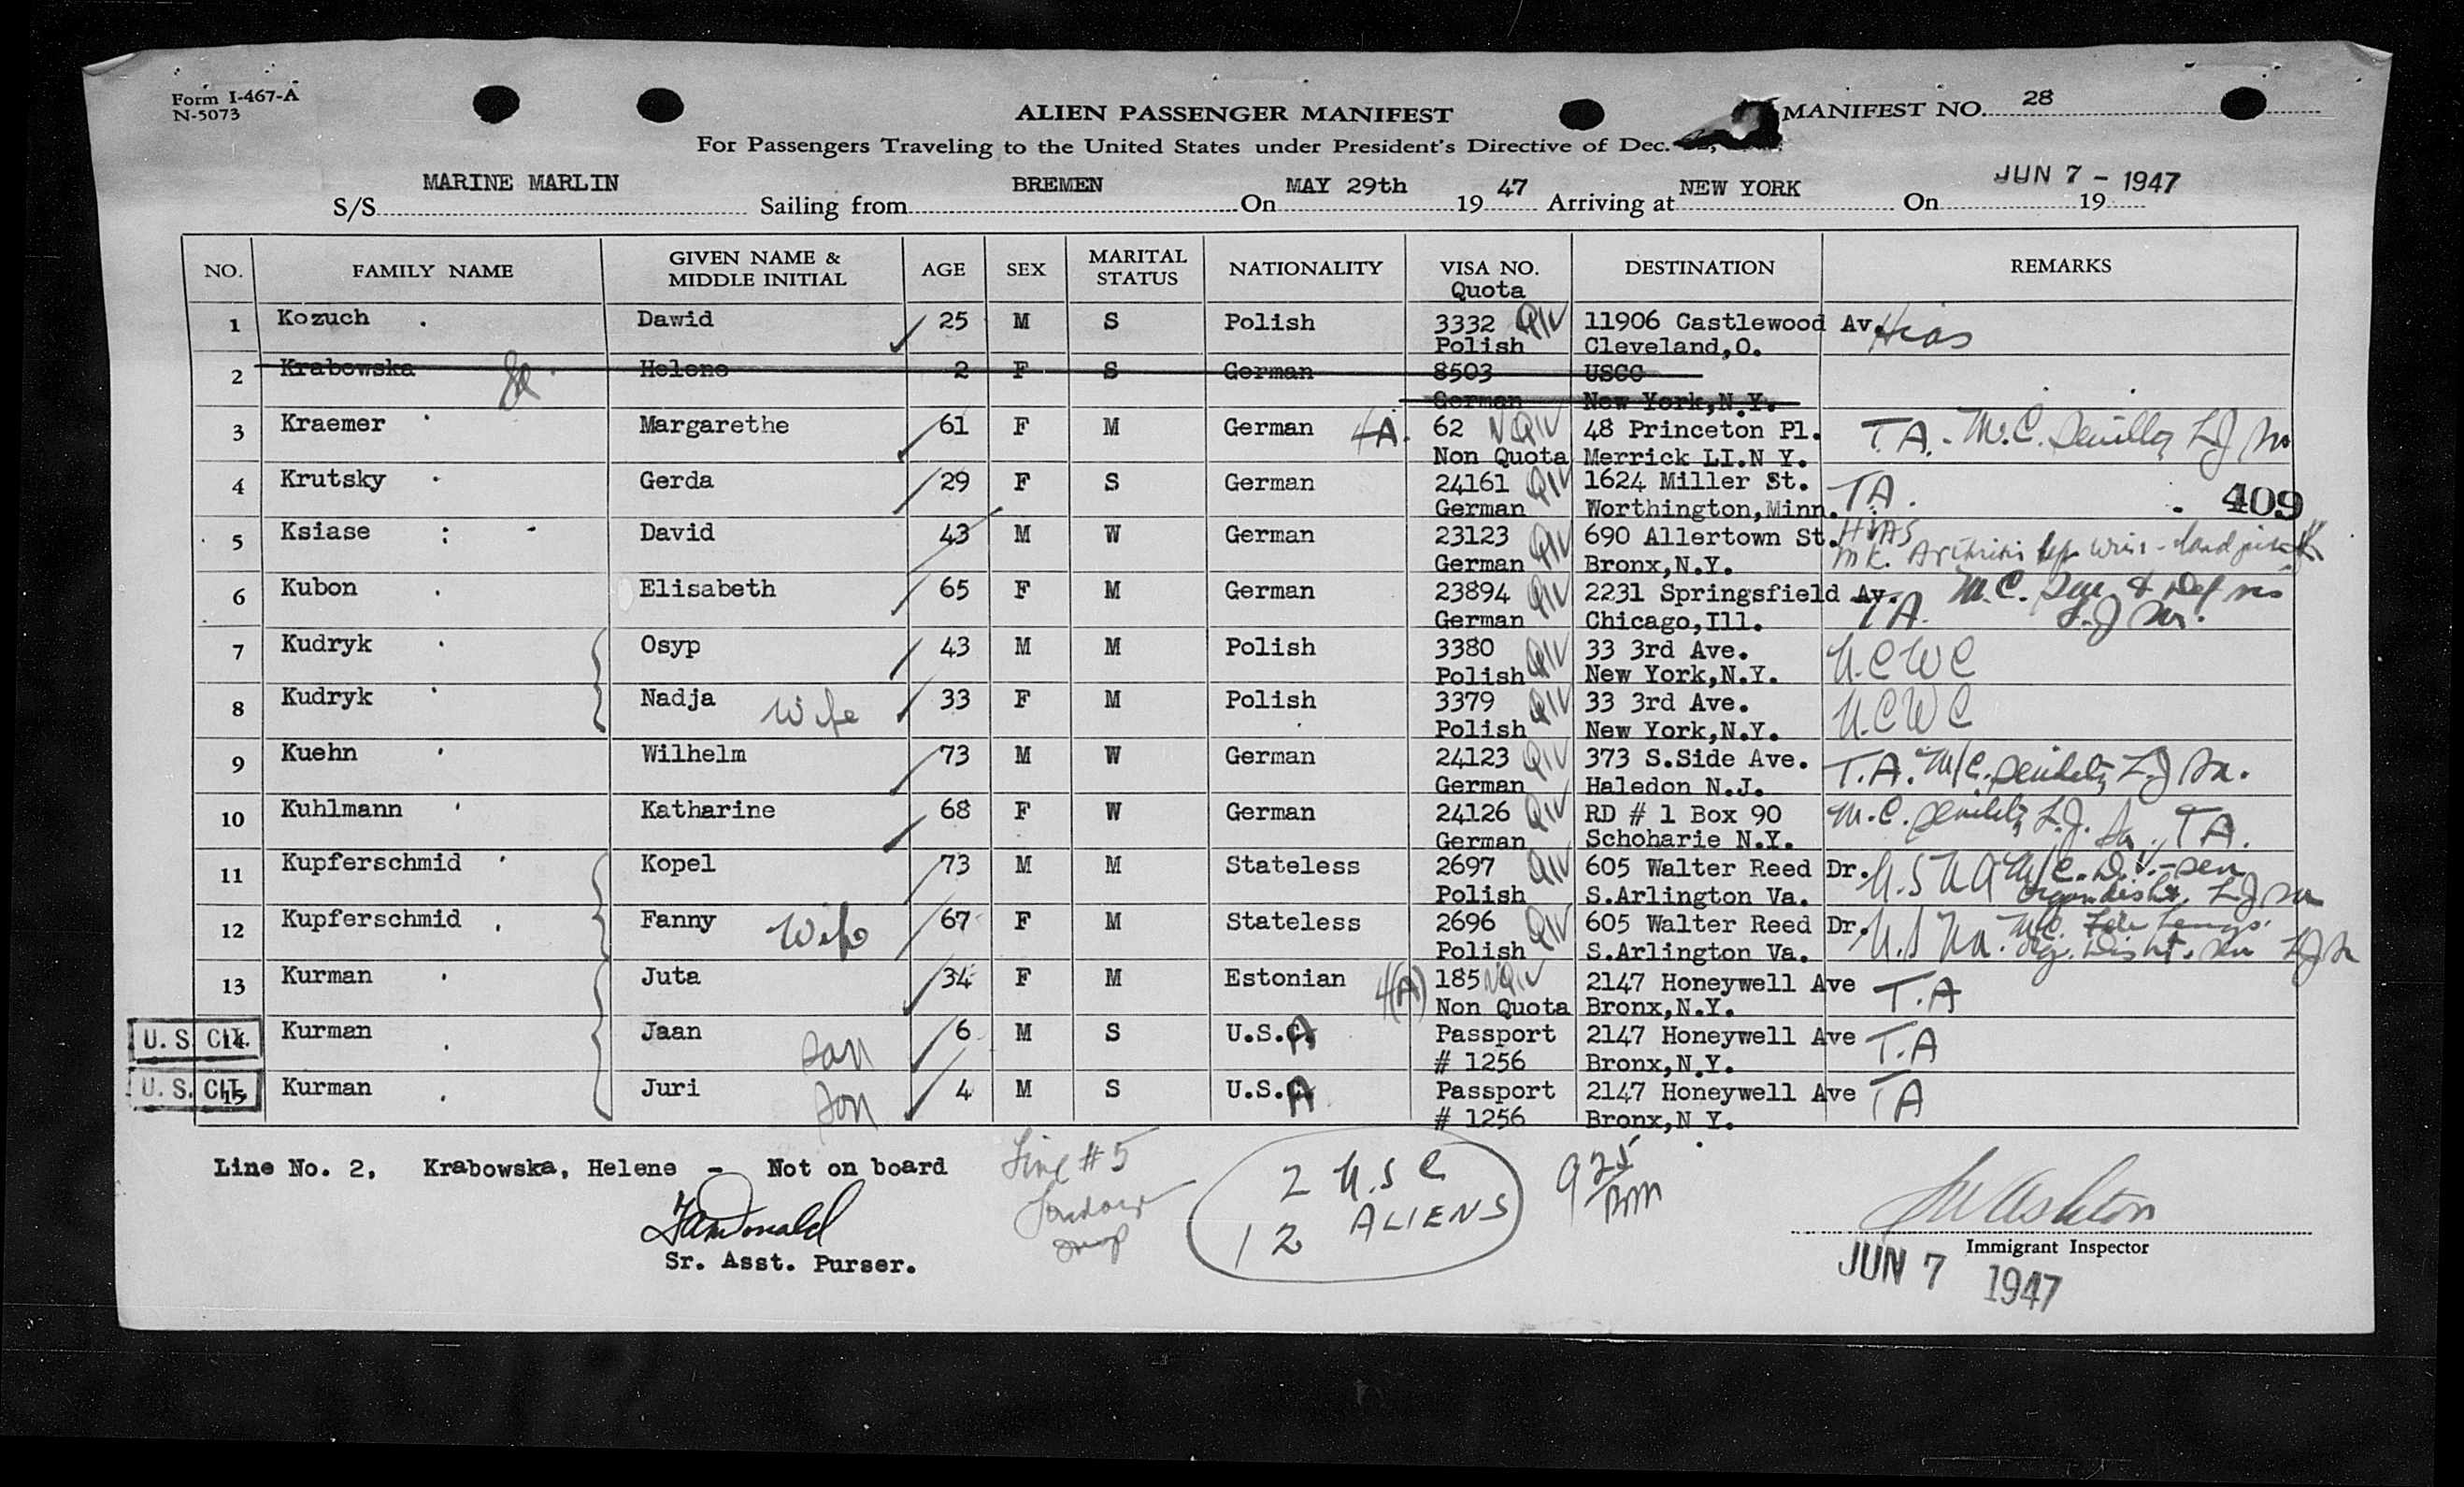 Form I-467-A
N-5073
ALIEN PASSENGER MANIFEST
MANIFEST NO. 28
For Passengers Traveling to the United States under President's Directive of Dec.
S/S MARINE MARLIN Sailing from BREMEN On MAY 29th 19 47 Arriving at NEW YORK On JUN 7 - 1947 19
NO. FAMILY NAME GIVEN NAME & MIDDLE INITIAL AGE SEX MARITAL STATUS NATIONALITY VISA NO. Quota DESTINATION REMARKS
1 Kozuch Dawid 25 M S Polish 3332 QIV 11906 Castlewood Av. Hias
Polish Cleveland,O.
2 Krabowska Helene 2 F S German 8503 USCC
German New York,N.Y.
3 Kraemer Margarethe 61 F M German 4A. 62 NQIV 48 Princeton Pl. T.A. M.C. Senility LJ
Non Quota Merrick LI.N Y.
4 Krutsky Gerda 29 F S German 24161 QIV 1624 Miller St. TA.
German Worthington,Minn. 409
5 Ksiase David 43 M W German 23123 QIV 690 Allertown St. HIAS
German Bronx,N.Y. Arthritis
6 Kubon Elisabeth 65 F M German 23894 QIV 2231 Springsfield Av. M.C. Sen & Def vis
German Chicago,Ill. TA. L.J
7 Kudryk Osyp 43 M M Polish 3380 QIV 33 3rd Ave. N.C W C
Polish New York,N.Y.
8 Kudryk Nadja Wife 33 F M Polish 3379 QIV 33 3rd Ave. N.C W C
Polish New York,N.Y.
9 Kuehn Wilhelm 73 M W German 24123 QIV 373 S.Side Ave. T.A. M/C. Senility L.J
German Haledon N.J.
10 Kuhlmann Katharine 68 F W German 24126 QIV RD # 1 Box 90 M.C. Senility L.J. TA.
German Schoharie N.Y.
11 Kupferschmid Kopel 73 M M Stateless 2697 QIV 605 Walter Reed Dr. U.S N A M/C. sen
Polish S.Arlington Va. LJ
12 Kupferschmid Fanny Wife 67 F M Stateless 2696 QIV 605 Walter Reed Dr. U.S Na. MC.
Polish S.Arlington Va.
13 Kurman Juta 34 F M Estonian 4(A) 185 NQIV 2147 Honeywell Ave T.A
Non Quota Bronx,N.Y.
U. S. CIT. 14 Kurman Jaan son 6 M S U.S.A Passport 2147 Honeywell Ave T.A
# 1256 Bronx,N.Y.
U. S. CIT. 15 Kurman Juri son 4 M S U.S.A Passport 2147 Honeywell Ave TA
# 1256 Bronx,N Y.
Line No. 2, Krabowska, Helene - Not on board
Line #5
2 U.S C
12 ALIENS
925
Sr. Asst. Purser.
Immigrant Inspector
JUN 7 1947